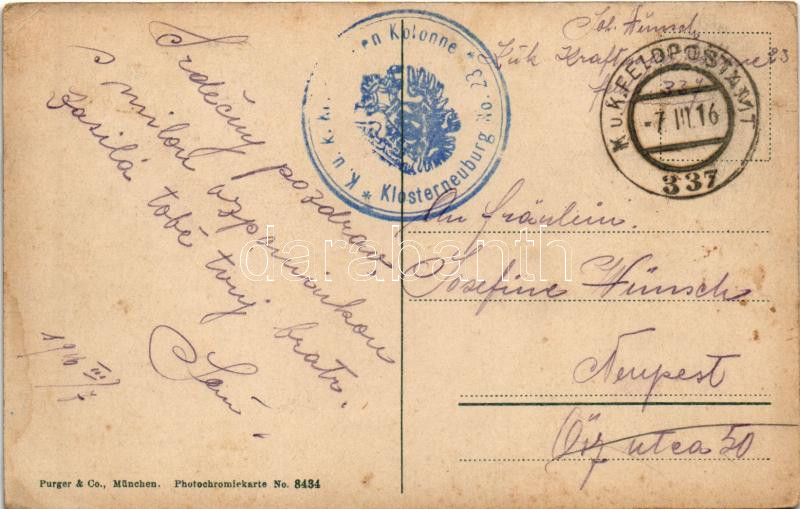 Srdečný pozdrav,
s milou vzpomínkou
zasílá tobě tvůj bratr.
Jan.
1916 III/7
K. u. K. en Kolonne * No. 23 * Klosterneuburg
Joh. Wünsch
K u K Kraft 23
K. u. K. FELDPOSTAMT
-7 III.16
337
An Fräulein
Josefine Wünsch
Neupest
Őz utca 50
darabanth
Purger & Co., München. Photochromiekarte No. 8434